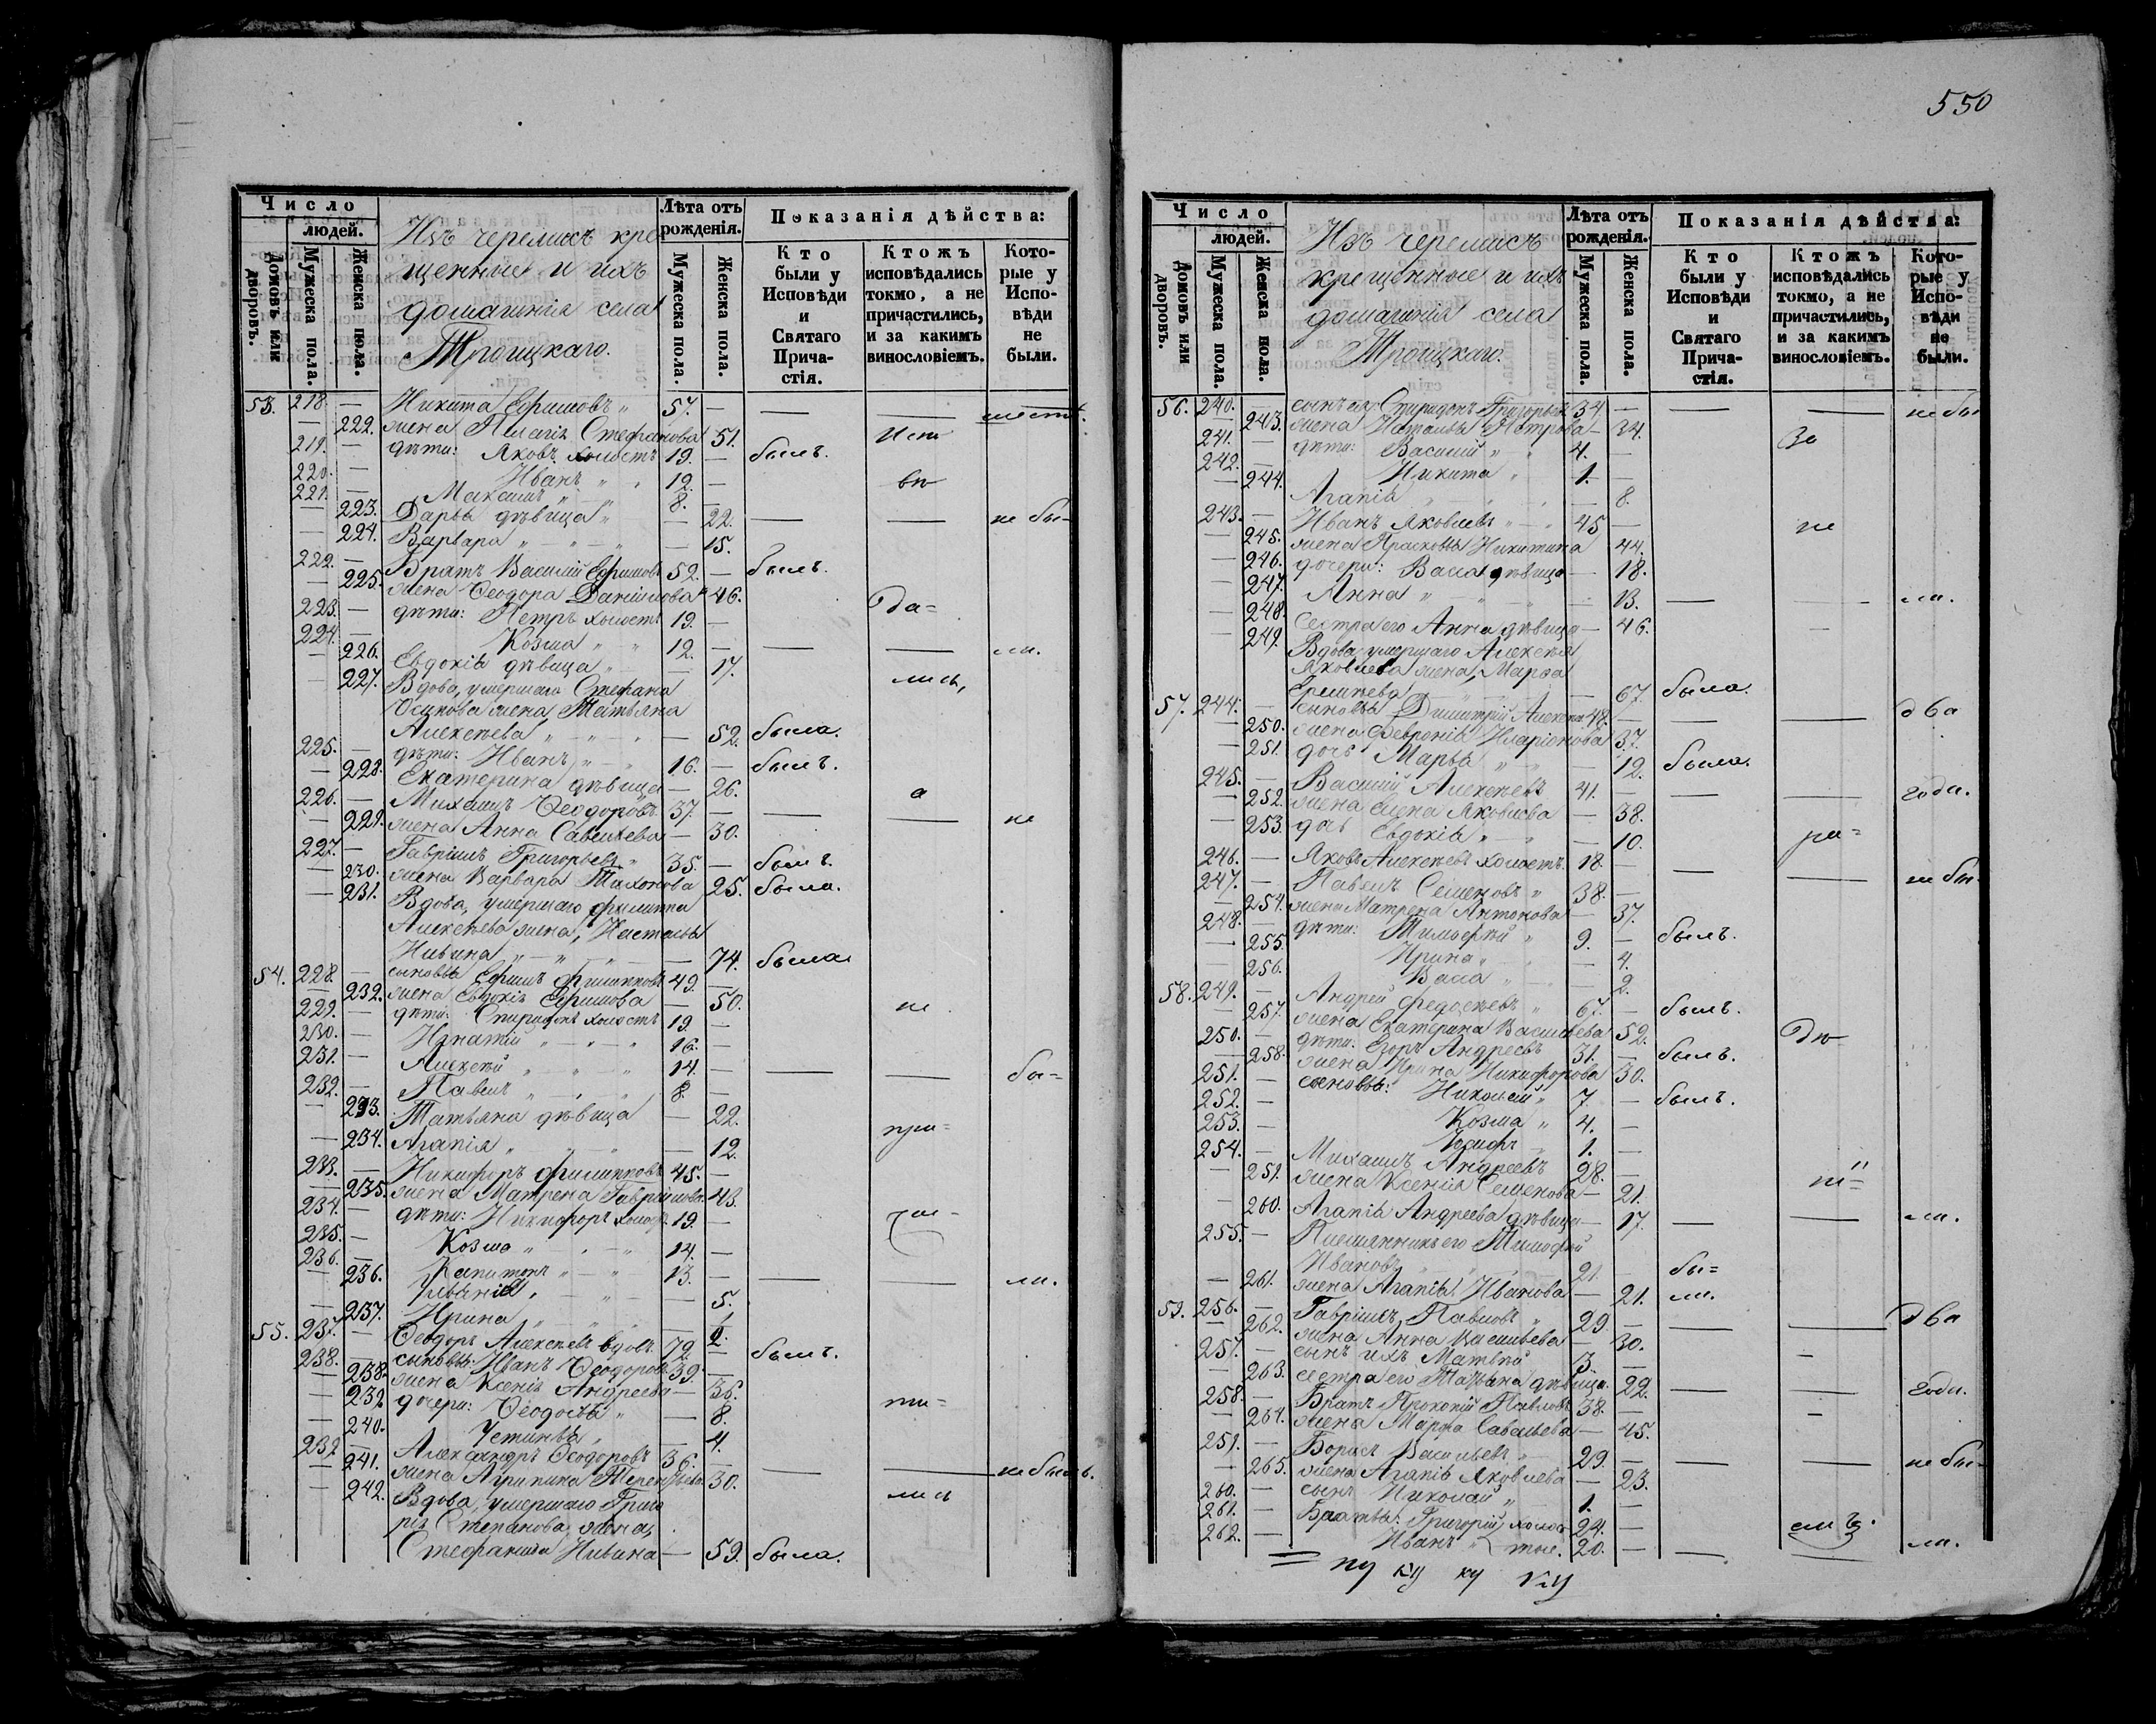 550
Число
людей.
домовъ или дворовъ.
Мужеска пола.
Женска пола.
Изъ черемисъ кре
щенные и ихъ
домашнія села
Троицкаго.
Лѣта отъ
рожденія.
Мужеска пола.
Женска пола.
Показанія дѣйства:
Кто были у Исповѣди и Святаго Прича-стія.
Ктожъ исповѣдались токмо, а не причастились, и за какимъ винословіемъ.
Кото-рые у Испо-вѣди не были.
53. 218. — Никита Ефимовъ „ 57. — — —
— 222. жена Пелагія Стефанова 51. Испо
219. — дѣти: Яковъ холостъ 19. — былъ.
220. — Иванъ „ „ 12. — вѣ
221. — Михаилъ „ — „ 8. —
— 223. Дарья дѣвица „ — 22. — — не бы-
— 224. Варвара „ — „ — „ — 15.
222. — Братъ Василій Ефимовъ 52. — былъ.
— 225. жена Ѳеодора Даніилова 46. да=
223. — дѣти: Петръ холостъ 19. —
224. — Козма „ — „ 12. — — — ли.
— 226. Евдокія дѣвица „ — 17.
— 227. Вдова, умершаго Стефана лись,
Осипова жена Татьяна
Алексѣева „ — „ — 52. была.
225. — дѣти: Иванъ „ — „ 16. — былъ.
— 228. Екатерина дѣвица — 26.
226. — Михаилъ Ѳеодоровъ 37. — — — а
— 229. жена Анна Савельева — 30. не
227. — Гавріилъ Григорьевъ „ 35. — былъ.
— 230. жена Варвара Тихонова 25. была.
— 231. Вдова, умершаго Филиппа
Алексѣева жена, Наталья
Ильина „ — „ — „ — 74. была
54. 228. — сыновья Ефимъ Филипповъ 49. —
— 232. жена Евдокія Ефимова — 50. не
229. — дѣти: Спиридонъ холостъ 19. —
230. — Игнатій „ — „ — „ 16. —
231. — Алексѣй „ — „ — „ 14. — — — бы=
232. — Павелъ „ — „ — „ 8. —
— 233. Татьяна дѣвица — 22. при=
— 234. Агапія „ — „ — „ — 12.
233. — Никифоръ Филипповъ 45. —
— 235. жена Матрена Гавріилова 43.
234. — дѣти: Никифоръ холос. 19. —
235. — Козма „ — „ — „ 14. —
236. — Капитонъ „ — „ 13. — — — ли.
— 236. „ — „ — 5.
— 237. Ирина „ — „ —
55. 237. — Ѳеодоръ Алексѣевъ вдовъ 72. — былъ.
238. — сыновья: Иванъ Ѳеодоровъ 39. —
— 238. жена Ксенія Андреева — 36.
— 239. дочери: Ѳеодосья „ — 8. ти=
— 240. Устинья „ — 4.
239. — Александръ Ѳеодоровъ 36. —
— 241. жена Агрипина Терентьева 30. — — не были.
— 242. Вдова, умершаго Григо лись
рія Степанова жена,
Стефанида Ильина — 59. была.
Число
людей.
домовъ или дворовъ.
Мужеска пола.
Женска пола.
Изъ черемисъ
крещенные и ихъ
домашнія села
Троицкаго.
Лѣта отъ
рожденія.
Мужеска пола.
Женска пола.
Показанія дѣйства:
Кто были у Исповѣди и Святаго Прича-стія.
Ктожъ исповѣдались токмо, а не причастились, и за какимъ винословіемъ.
Кото-рые у Испо-вѣди не были.
56. 240. — сынъ его Спиридонъ Григорьев 34. — — — не бы
— 243. жена Наталья Петрова — 34. За
241. — дѣти: Василій „ „ 4. —
242. — Никита „ 1. —
— 244. Агапія „ — „ — 8.
243. — Иванъ Яковлевъ „ — „ 45 — не
— 245. жена Прасковья Никитина 44.
— 246. дочери: Васса дѣвица — 18.
— 247. Анна „ — „ — 13. — — ли.
— 248. Сестра его Анна дѣвица — 46.
— 249. Вдова, умершаго Алексѣя
Яковлева жена, Марѳа
Еремѣева — 67. была.
57. 244. — сыновья Димитрій Алексѣев 48. — — — два
— 250. жена Февронія Иларіонова 37.
— 251. дочь Марья „ „ — 12. была.
245. — Василій Алексѣевъ 41. — — — года.
— 252. жена Елена Яковлева — 38.
— 253. дочь Евдокія „ „ — 10. ра=
246. — Яковъ Алексѣевъ холостъ 18. —
247. — Павелъ Семеновъ „ 38. — — — не бы-
— 254. жена Матрена Антонова — 37.
248. — дѣти: Тимофей „ 9. — былъ.
— 255. Ирина „ — „ — 4.
— 256. Васса „ — „ — 2.
58. 249. — Андрей Федосѣевъ „ 67. — былъ.
— 257. жена Екатерина Васильева 52.
250. — дѣти: Егоръ Андреевъ 31. — былъ.
— 258. жена Ирина Никифорова 30.
251. — сыновья: Николай „ 7. — былъ.
252. — Козма „ 4. —
253. — Іосифъ „ 1. —
254. — Михаилъ Андреевъ 28. —
— 259. жена Ксенія Семенова — 21.
— 260. Агапія Андреева дѣвица — 17. — — ли.
255. — Племянникъ его Тимофей
Ивановъ „ 21. бы=
— 261. жена Агапія Иванова — 21. ли.
59. 256. — Гавріилъ Павловъ „ 29 — — — два
— 262. жена Анна Васильева — 30.
257. — сынъ ихъ Матвѣй 3. —
— 263. сестра его Татьяна дѣвица. 22. — — года.
258. — Братъ Прокопій Павловъ 38. —
— 264. жена Марѳа Савельева — 45.
259. — Борисъ Васильевъ „ 29. — — — не бы-
— 265. жена Агапія Яковлева — 23.
260. — сынъ Николай „ 1. —
261. — Братья: Григорій холос 24. —
262. — Иванъ „ тые. 20. — — — ли.